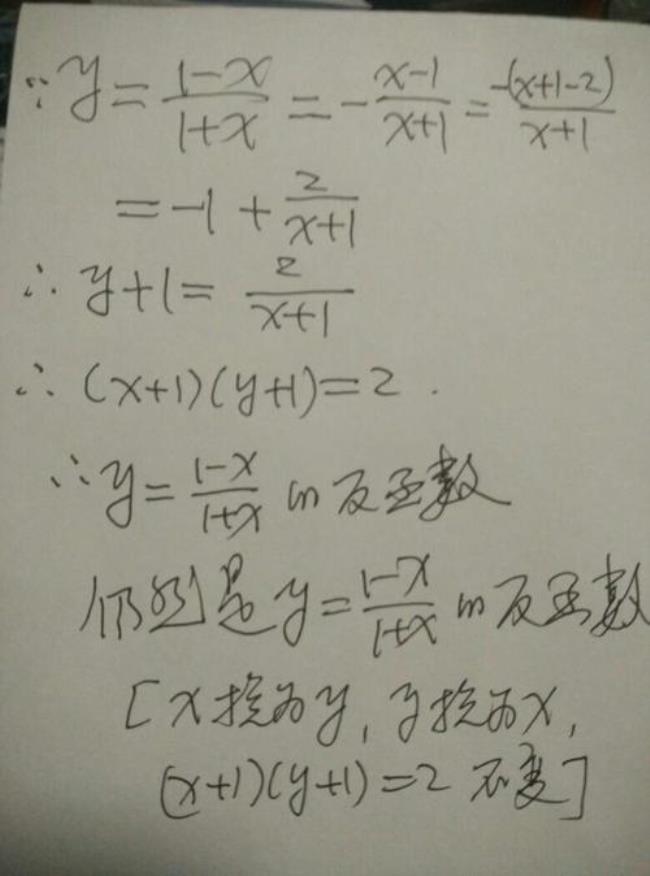 ∵ y = \frac{1-x}{1+x} = -\frac{x-1}{x+1} = \frac{-(x+1-2)}{x+1}
= -1 + \frac{2}{x+1}
∴ y+1 = \frac{2}{x+1}
∴ (x+1)(y+1)=2.
∴ y = \frac{1-x}{1+x} 的反函数
仍然是 y = \frac{1-x}{1+x} 的反函数
[x换为y, y换为x,
(x+1)(y+1)=2 不变]